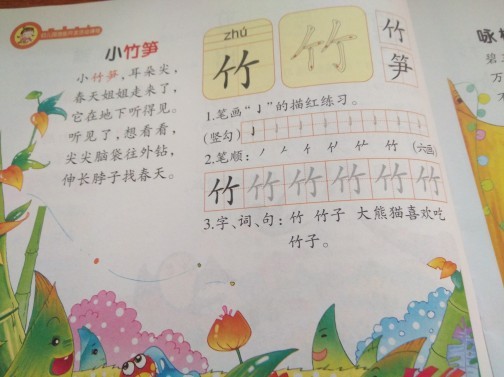 小竹笋
小竹笋，耳朵尖，
春天姐姐走来了，
它在地下听得见。
听见了，想看看，
尖尖脑袋往外钻，
伸长脖子找春天。
zhú
竹
竹
竹
笋
1.笔画“亅”的描红练习。
(竖勾) 亅 亅 亅 亅 亅 亅 亅 亅 亅 亅
2.笔顺：
(六画)
竹 竹 竹 竹 竹 竹 竹
3.字、词、句：竹 竹子 大熊猫喜欢吃
竹子。
咏